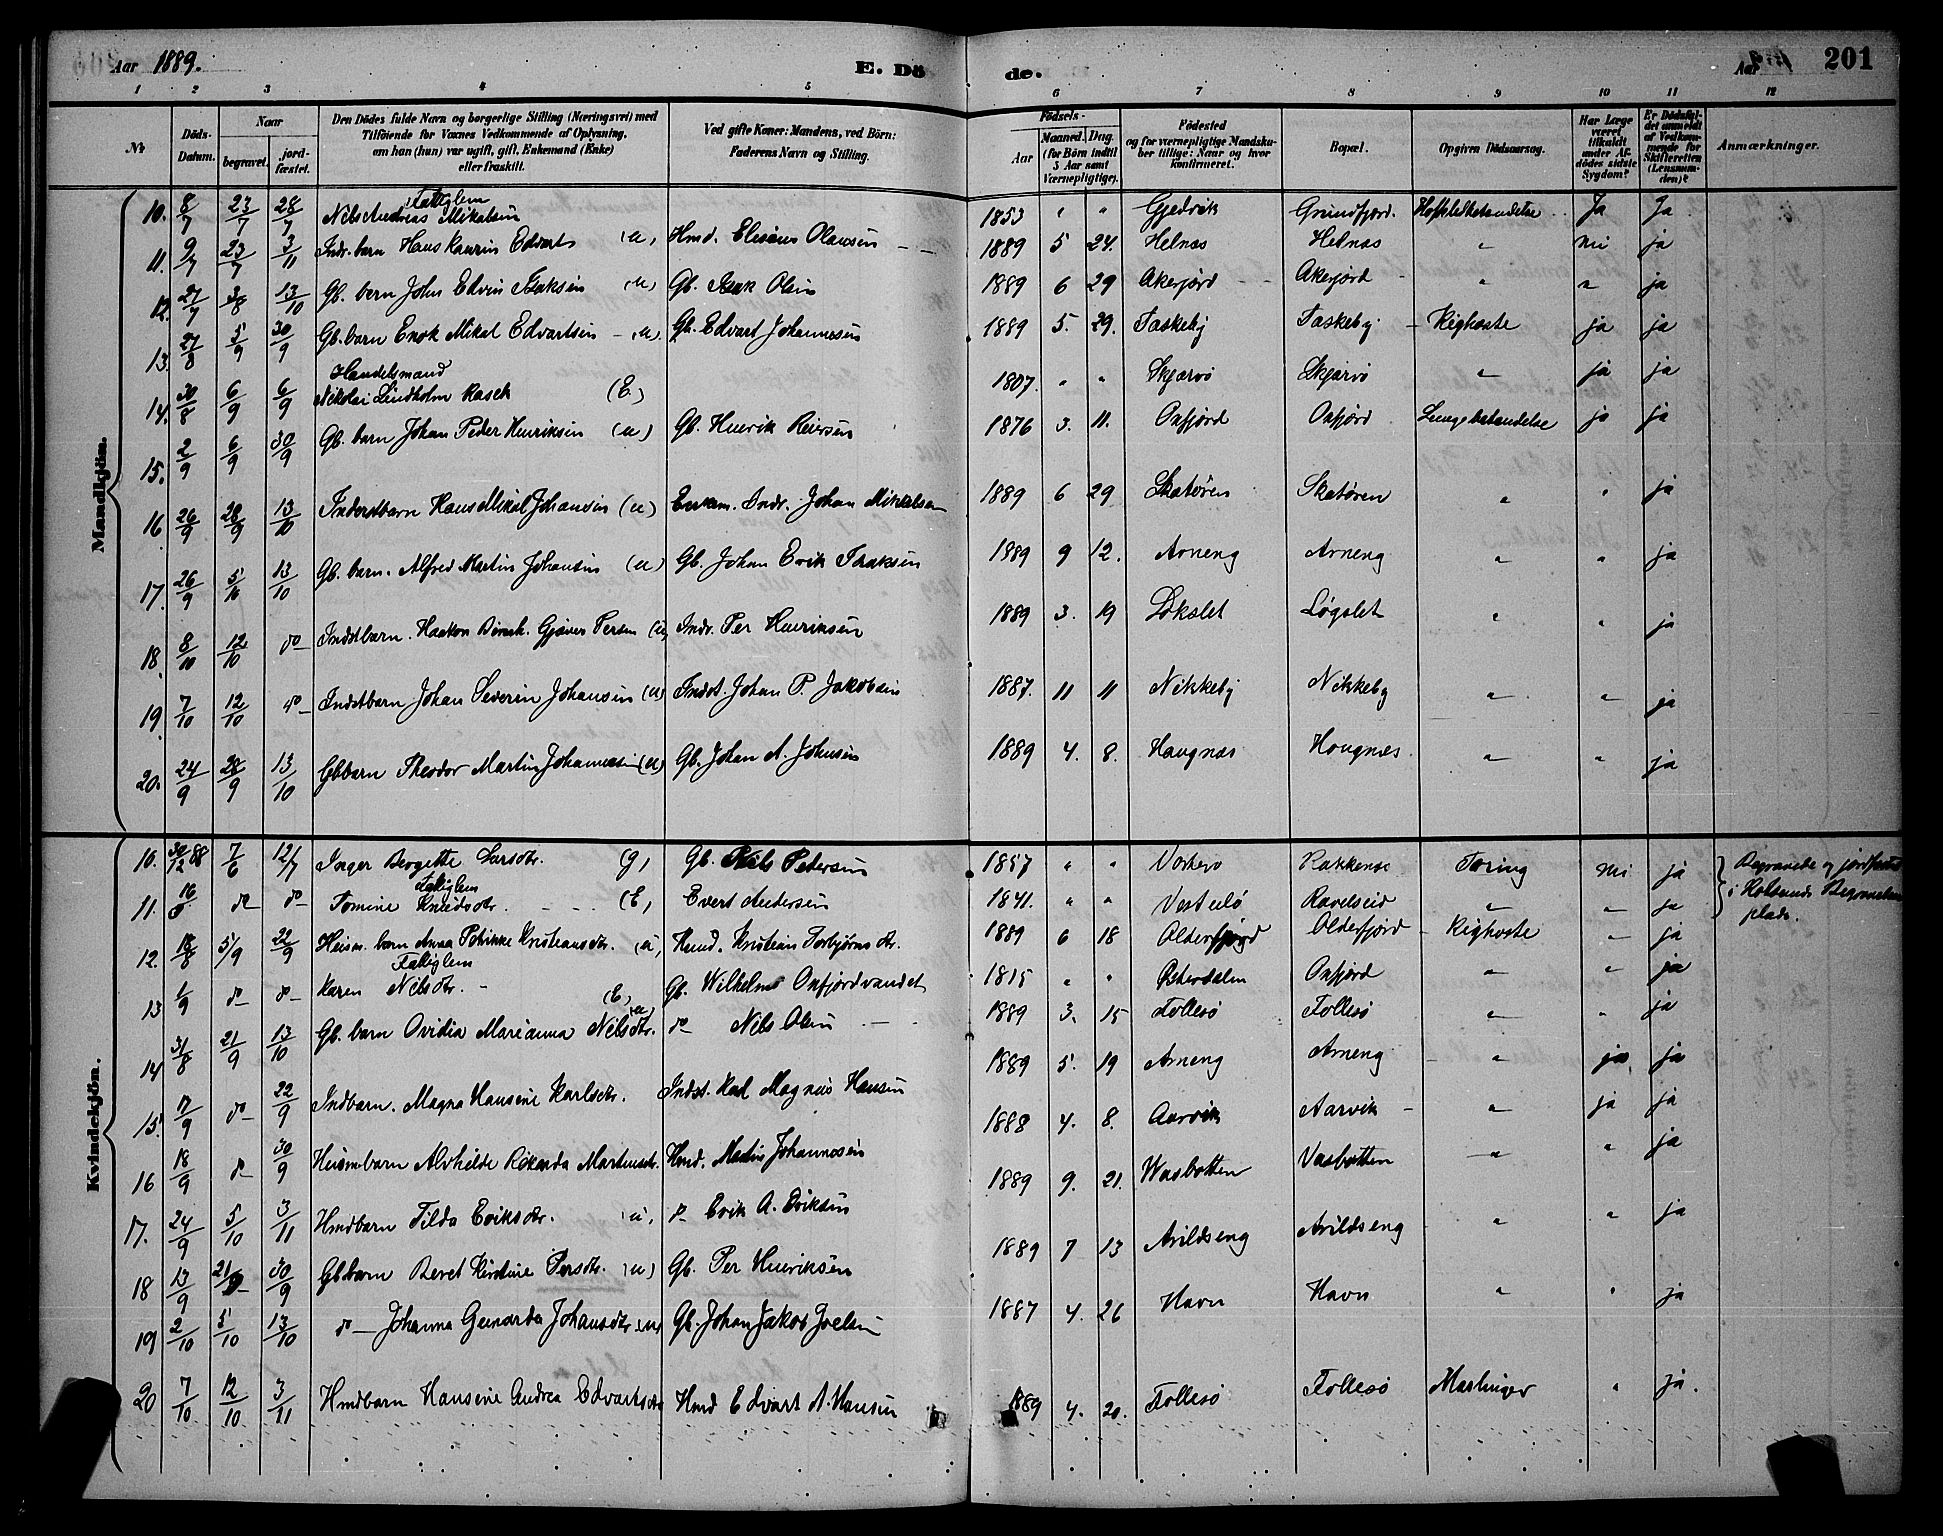 Aar 1889.
E. Döde.
Aar
201
1 2 3 4 5 6 7 8 9 10 11 12
№
Döds-Datum.
Naar
begravet.
jordfæstet.
Den Dödes fulde Navn og borgerlige Stilling (Næringsvei) med
Tilföiende for Voxnes Vedkommende af Oplysning,
om han (hun) var ugift, gift, Enkemand (Enke)
eller fraskilt.
Ved gifte Koner: Mandens, ved Börn:
Faderens Navn og Stilling.
Födsels-
Aar
Maaned. Dag.
(for Börn indtil
5 Aar samt
Værnepligtige).
Födested
og for værnepligtige Mandskaber tillige: Naar og hvor
konfirmeret.
Bopæl.
Opgiven Dödsaarsag.
Har Læge
været
tilkaldt
under Afdödes sidste
Sygdom?
Er Dödsfaldet anmeldt
af Vedkommende for
Skifteretten
(Lensmanden)?
Anmærkninger.
Mandkjön.
10. 8/7 23/7 28/7 Fattiglem Nils Andreas Mikalsen 1853 " " Gjedvik Grundfjord. Ja Ja
11. 9/7 23/7 3/11 Indr. barn Hans Kaurin Edvart (u) Hmd. Eliseus Olausen 1889 5 24. Helnæs Helnæs " nei ja
12. 27/7 3/8 13/10 Gb. barn John Edvin Isaksen (u) Gb. Isak Olsen 1889 6 29 Akerfjord Akerfjord " " ja
13. 27/8 5/9 30/9 Gb. barn Enok Mikal Edvartsen (u) Gb. Edvart Johannesen 1889 5. 29. Taskeby Taskeby Kighoste ja ja
14. 30/8 6/9 6/9 Handelsmand Nikolai Lindholm Rasch (E.) 1807. " " Skjærvö Skjærvö " ja ja
15. 2/9 6/9 30/9 Gb. barn Johan Peder Henriksen (u) Gb. Henrik Reiersen 1876 3. 11. Oxfjord Oxfjord Lungebetændelse ja ja
16 26/9 28/9 13/10 Inderstbarn Hans Mikal Johansen (u) Indr. Johan Mikkelsen 1889 6 29 Skatören Skatören " " ja
17. 26/9 5/10 13/10 Gb. barn. Alfred Martin Johansen (u) Gb. Johan Erik Isaksen 1889 9 12. Arneng Arneng " " ja
18. 8/10 12/10 do Indstbarn. Haakon Gjæver Persen (u) Indr. Per Henriksen 1889 3. 19 Lökslet Løgslet " " ja
19. 7/10 12/10 do Indstbarn Johan Severin Johansen (u) Indst. Johan P. Jakobsen 1887. 11 11 Nikkeby Nikkeby " " ja
20. 24/9 28/9 13/10 Gbbarn Theodor Martin Johannesen (u) Gb. Johan A. Johnsen 1889 4. 8. Haugnæs Haugnæs " " ja
Kvindekjön.
10. 30/12 88 7/6 12/7 Inger Bergette Larsdtr. (g) Gb. Nils Petersen 1857 " " Vorterø Rakkenæs Tæring nei ja
11. do do Fattiglem Tomine Knudsdtr. (E) Evert Andersen 1841. " " Ravelseid " " ja
Begravede og jordfæstede i Rotsunds Begravelsesplads.
12. 18/8 5/9 22/9 Husm. barn Anna Kristiansdtr. (u) Hmd. Kristian 1889 6 18 Olderfjord Olderfjord Kighoste " ja
13 1/9 do do Fattiglem Karen Nilsdtr. (E) Gb. Wilhelm Oxfjordvandet 1815 " " Østerdalen Oxfjord " " ja
14 31/8 21/9 13/10 Gb. barn Ovidia Marianna Nilsdtr. (u) do Nils Olsen 1889 3. 15 Follesø Follesø " " ja
15. 7/9 do 22/9 Indbarn. Magna Hansine Karlsdtr. Indst. Karl Magnus Hansen 1889 5. 19 Arneng Arneng " ja ja
16 18/9 do 30/9 Husmbarn Alvhilde Rikarda Martinsdtr. Hmd. Martin Johannesen 1888 4. 8. Aarvik Aarvik " ja ja
17. 24/9 5/10 3/11 Hmdbarn Tilda Eriksdtr. (u) do Erik A. Eriksen 1889 9. 21. Wasbotten Vasbotten " " ja
18 13/9 21/9 30/9 Gbbarn Beret Kirstine Persdtr. (u) Gb. Per Henriksen 1889 7 13 Arildseng Arildseng " " ja
19 2/10 5/10 13/10 do Johanna Genarda Johansdtr. (u) Gb. Johan Jakob Joelsen 1887 4. 26 Havn Havn " " ja
20 7/10 12/10 3/11 Hmdbarn Hansine Andrea Edvartsdtr. Hmd Edvart A. Hansen 1889 4. 20. Follesø Follesø Mæslinger " ja.